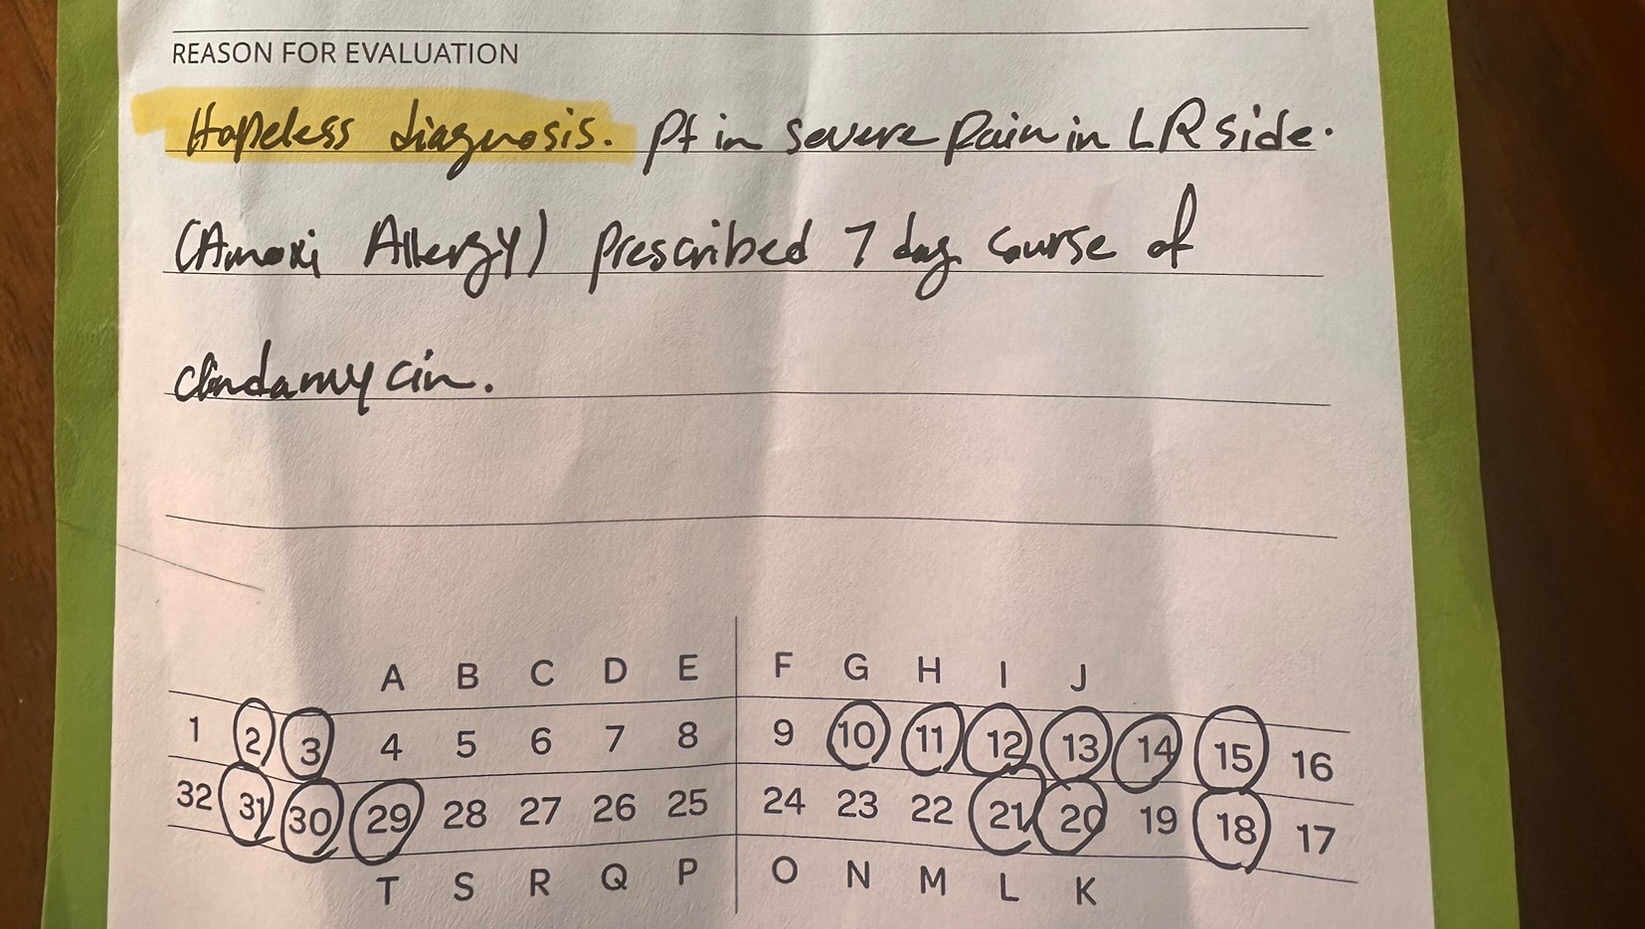 REASON FOR EVALUATION
Hopeless diagnosis. Pt in severe pain in LR side.
(Amoxi Allergy) prescribed 7 day course of
clindamycin.
A B C D E F G H I J
1 2 3 4 5 6 7 8 9 10 11 12 13 14 15 16
32 31 30 29 28 27 26 25 24 23 22 21 20 19 18 17
T S R Q P O N M L K